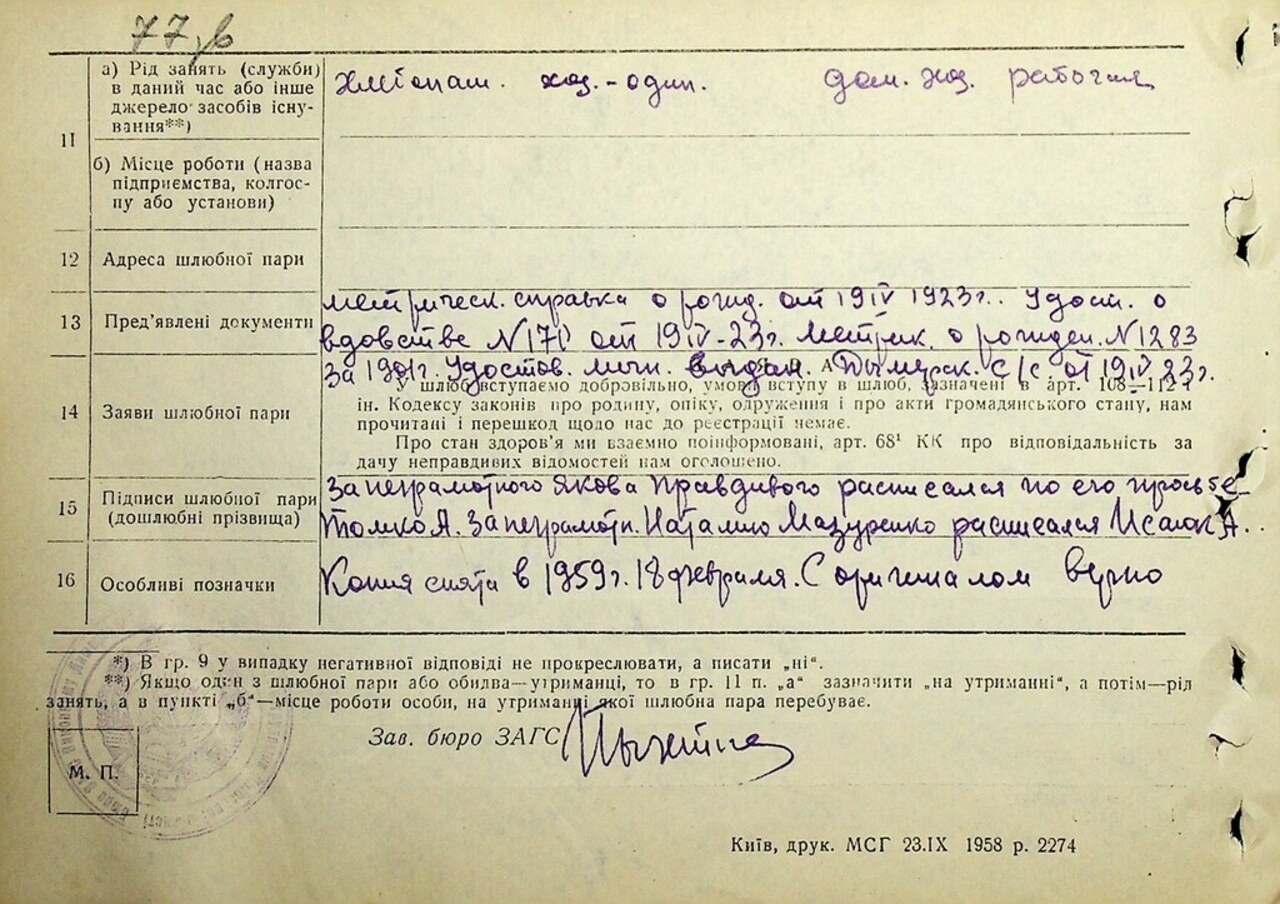 77зв
11
а) Рід занять (служби)
в даний час або інше
джерело засобів існу-
вання**)
хлібопаш. хоз.-один. дом. хоз. рабочая
б) Місце роботи (назва
підприємства, колгос-
пу або установи)
12 Адреса шлюбної пари
13 Пред’явлені документи
метрическ. справка о рожд. от 19 IV 1923г. Удост. о
вдовстве N 170 от 19 IV-23г. Метрик. о рожден. N 1283
за 1901г. Удостов. личн. выдан. С/С от 19 IV 23г.
14 Заяви шлюбної пари
ЗАЯВА
У шлюб вступаємо добровільно, умови вступу в шлюб, зазначені в арт. 108—112 і
ін. Кодексу законів про родину, опіку, одруження і про акти громадянського стану, нам
прочитані і перешкод щодо нас до реєстрації немає.
Про стан здоров’я ми взаємно поінформовані, арт. 68¹ КК про відповідальність за
дачу неправдивих відомостей нам оголошено.
15 Підписи шлюбної пари
(дошлюбні прізвища)
За неграмотного Якова Правдивого расписался по его просьбе
А. За неграмотн. Наталию Мазуренко расписался Исаюк А.
16 Особливі позначки
Копия снята в 1959г. 18 февраля. С оригиналом верно
*) В гр. 9 у випадку негативної відповіді не прокреслювати, а писати „ні“.
**) Якщо один з шлюбної пари або обидва—утриманці, то в гр. 11 п. „а“ зазначити „на утриманні“, а потім—рід
занять, а в пункті „б“—місце роботи особи, на утриманні якої шлюбна пара перебуває.
Зав. бюро ЗАГС
М. П.
Київ, друк. МСГ 23.IX 1958 р. 2274